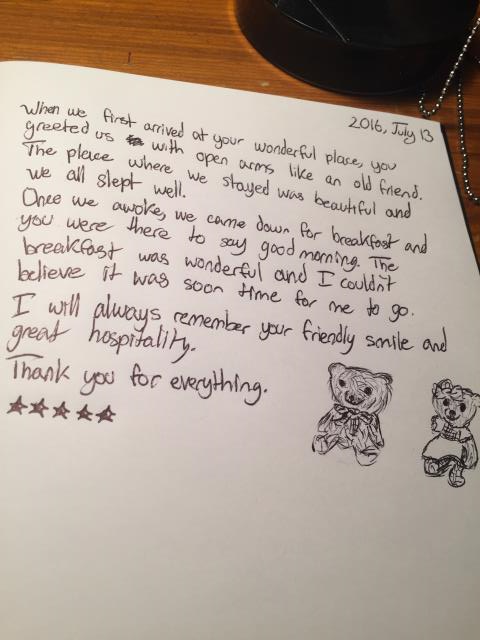 2016, July 13
When we first arrived at your wonderful place, you
greeted us with open arms like an old friend.
The place where we stayed was beautiful and
we all slept well.
Once we awoke, we came down for breakfast and
you were there to say good morning. The
breakfast was wonderful and I couldn't
believe it was soon time for me to go.
I will always remember your friendly smile and
great hospitality.
Thank you for everything.
★★★★★